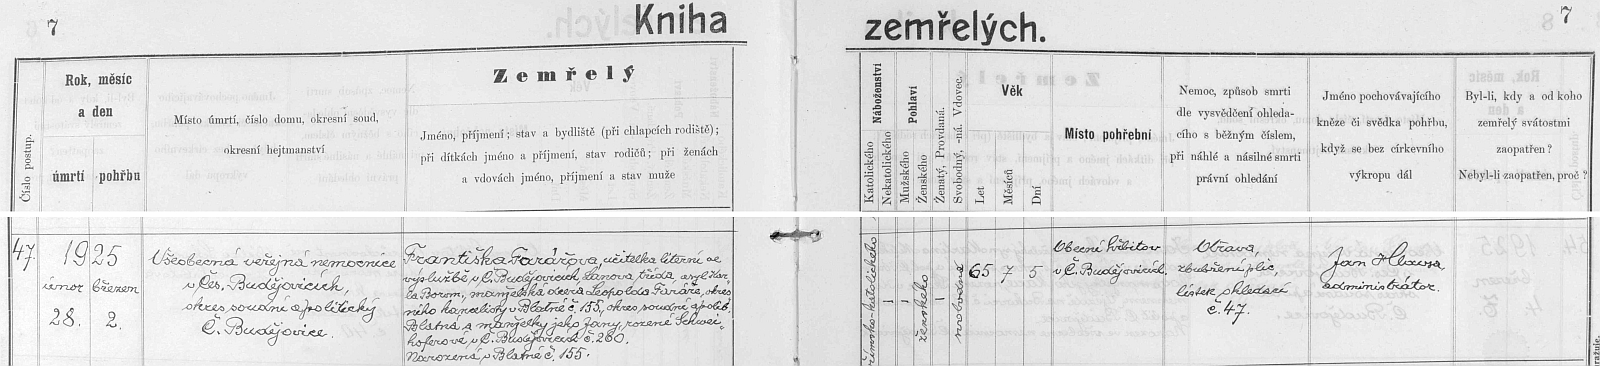 7
Kniha
zemřelých.
7
Číslo postup.
Rok, měsíc
a den
úmrtí pohřbu
Místo úmrtí, číslo domu, okresní soud,
okresní hejtmanství
Zemřelý
Jméno, příjmení; stav a bydliště (při chlapcích rodiště);
při dítkách jméno a příjmení, stav rodičů; při ženách
a vdovách jméno, příjmení a stav muže
Náboženství
Katolického
Nekatolického
Pohlaví
Mužského
Ženského
Ženatý, Provdaná.
Svobodný, -ná. Vdovec.
Věk
Let
Měsíců
Dní
Místo pohřební
Nemoc, způsob smrti
dle vysvědčení ohleda-
cího s běžným číslem,
při náhlé a násilné smrti
právní ohledání
Jméno pochovávajícího
kněze či svědka pohřbu,
když se bez církevního
výkropu dál
Byl-li, kdy a od koho
zemřelý svátostmi
zaopatřen?
Nebyl-li zaopatřen, proč?
47
1925
únor březen
28. 2.
Všeobecná veřejná nemocnice
v Čes. Budějovicích,
okres soudní a politický
Č. Budějovice.
Františka Farářova, učitelka literní ve
výslužbě v Č. Budějovicích, Lanova třída, asyl Kar-
la Borom., manželská dcera Leopolda Faráře, okres-
ního kancelisty v Blatné č. 155, okres soudní a polit.
Blatná a manželky jeho Jany, rozené Schwei-
hoferové v Č. Budějovicích č. 260.
Narozená v Blatné č. 155.
římsko-katolického
ženského
svobodná
65 7 5
Obecní hřbitov
v Č. Budějovicích.
Otrava,
zbubření plic,
lístek ohledací
č. 47.
Jan Hlavsa
administrátor.